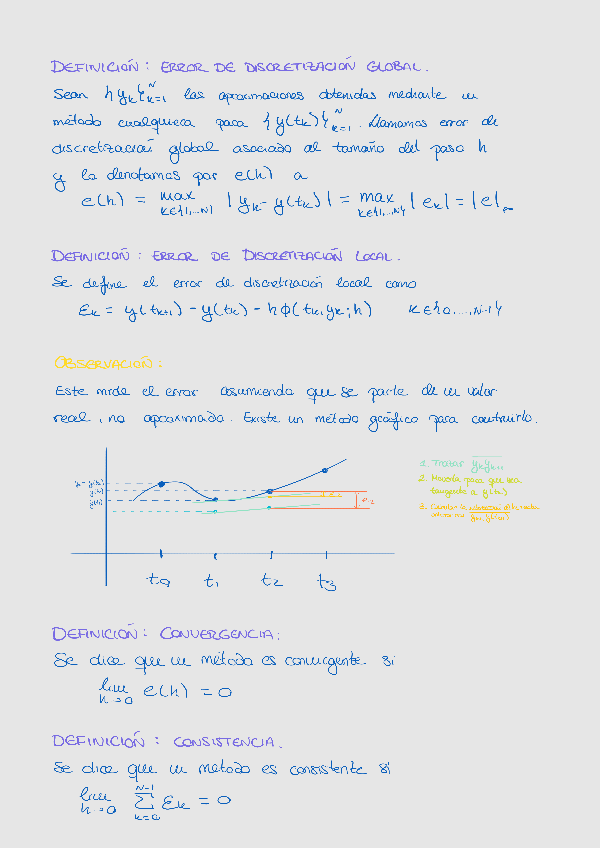 DEFINICIÓN: ERROR DE DISCRETIZACIÓN GLOBAL.
Sean {yₖ}ₖ₌₁^Ñ las aproximaciones obtenidas mediante un
método cualquiera para {y(tₖ)}ₖ₌₁^Ñ. Llamamos error de
discretización global asociado al tamaño del paso h
y lo denotamos por e(h) a
e(h) = max k∈{1,...N} | yₖ - y(tₖ) | = max k∈{1,...N} | eₖ | = |e|∞
DEFINICIÓN: ERROR DE DISCRETIZACIÓN LOCAL.
Se define el error de discretización local como
Ɛₖ = y(tₖ₊₁) - y(tₖ) - hϕ(tₖ, yₖ; h) k∈{0,...,N-1}
OBSERVACIÓN:
Este mide el error asumiendo que se parte de un valor
real, no aproximado. Existe un método gráfico para construirlo.
1. Trazar yₖyₖ₊₁
2. Moverla para que sea
tangente a y(tₖ)
t₀ t₁ t₂ t₃
DEFINICIÓN: CONVERGENCIA.
Se dice que un método es convergente si
lim h→0 e(h) = 0
DEFINICIÓN: CONSISTENCIA.
Se dice que un método es consistente si
lim h→0 ∑ₖ₌₀^N-1 Ɛₖ = 0